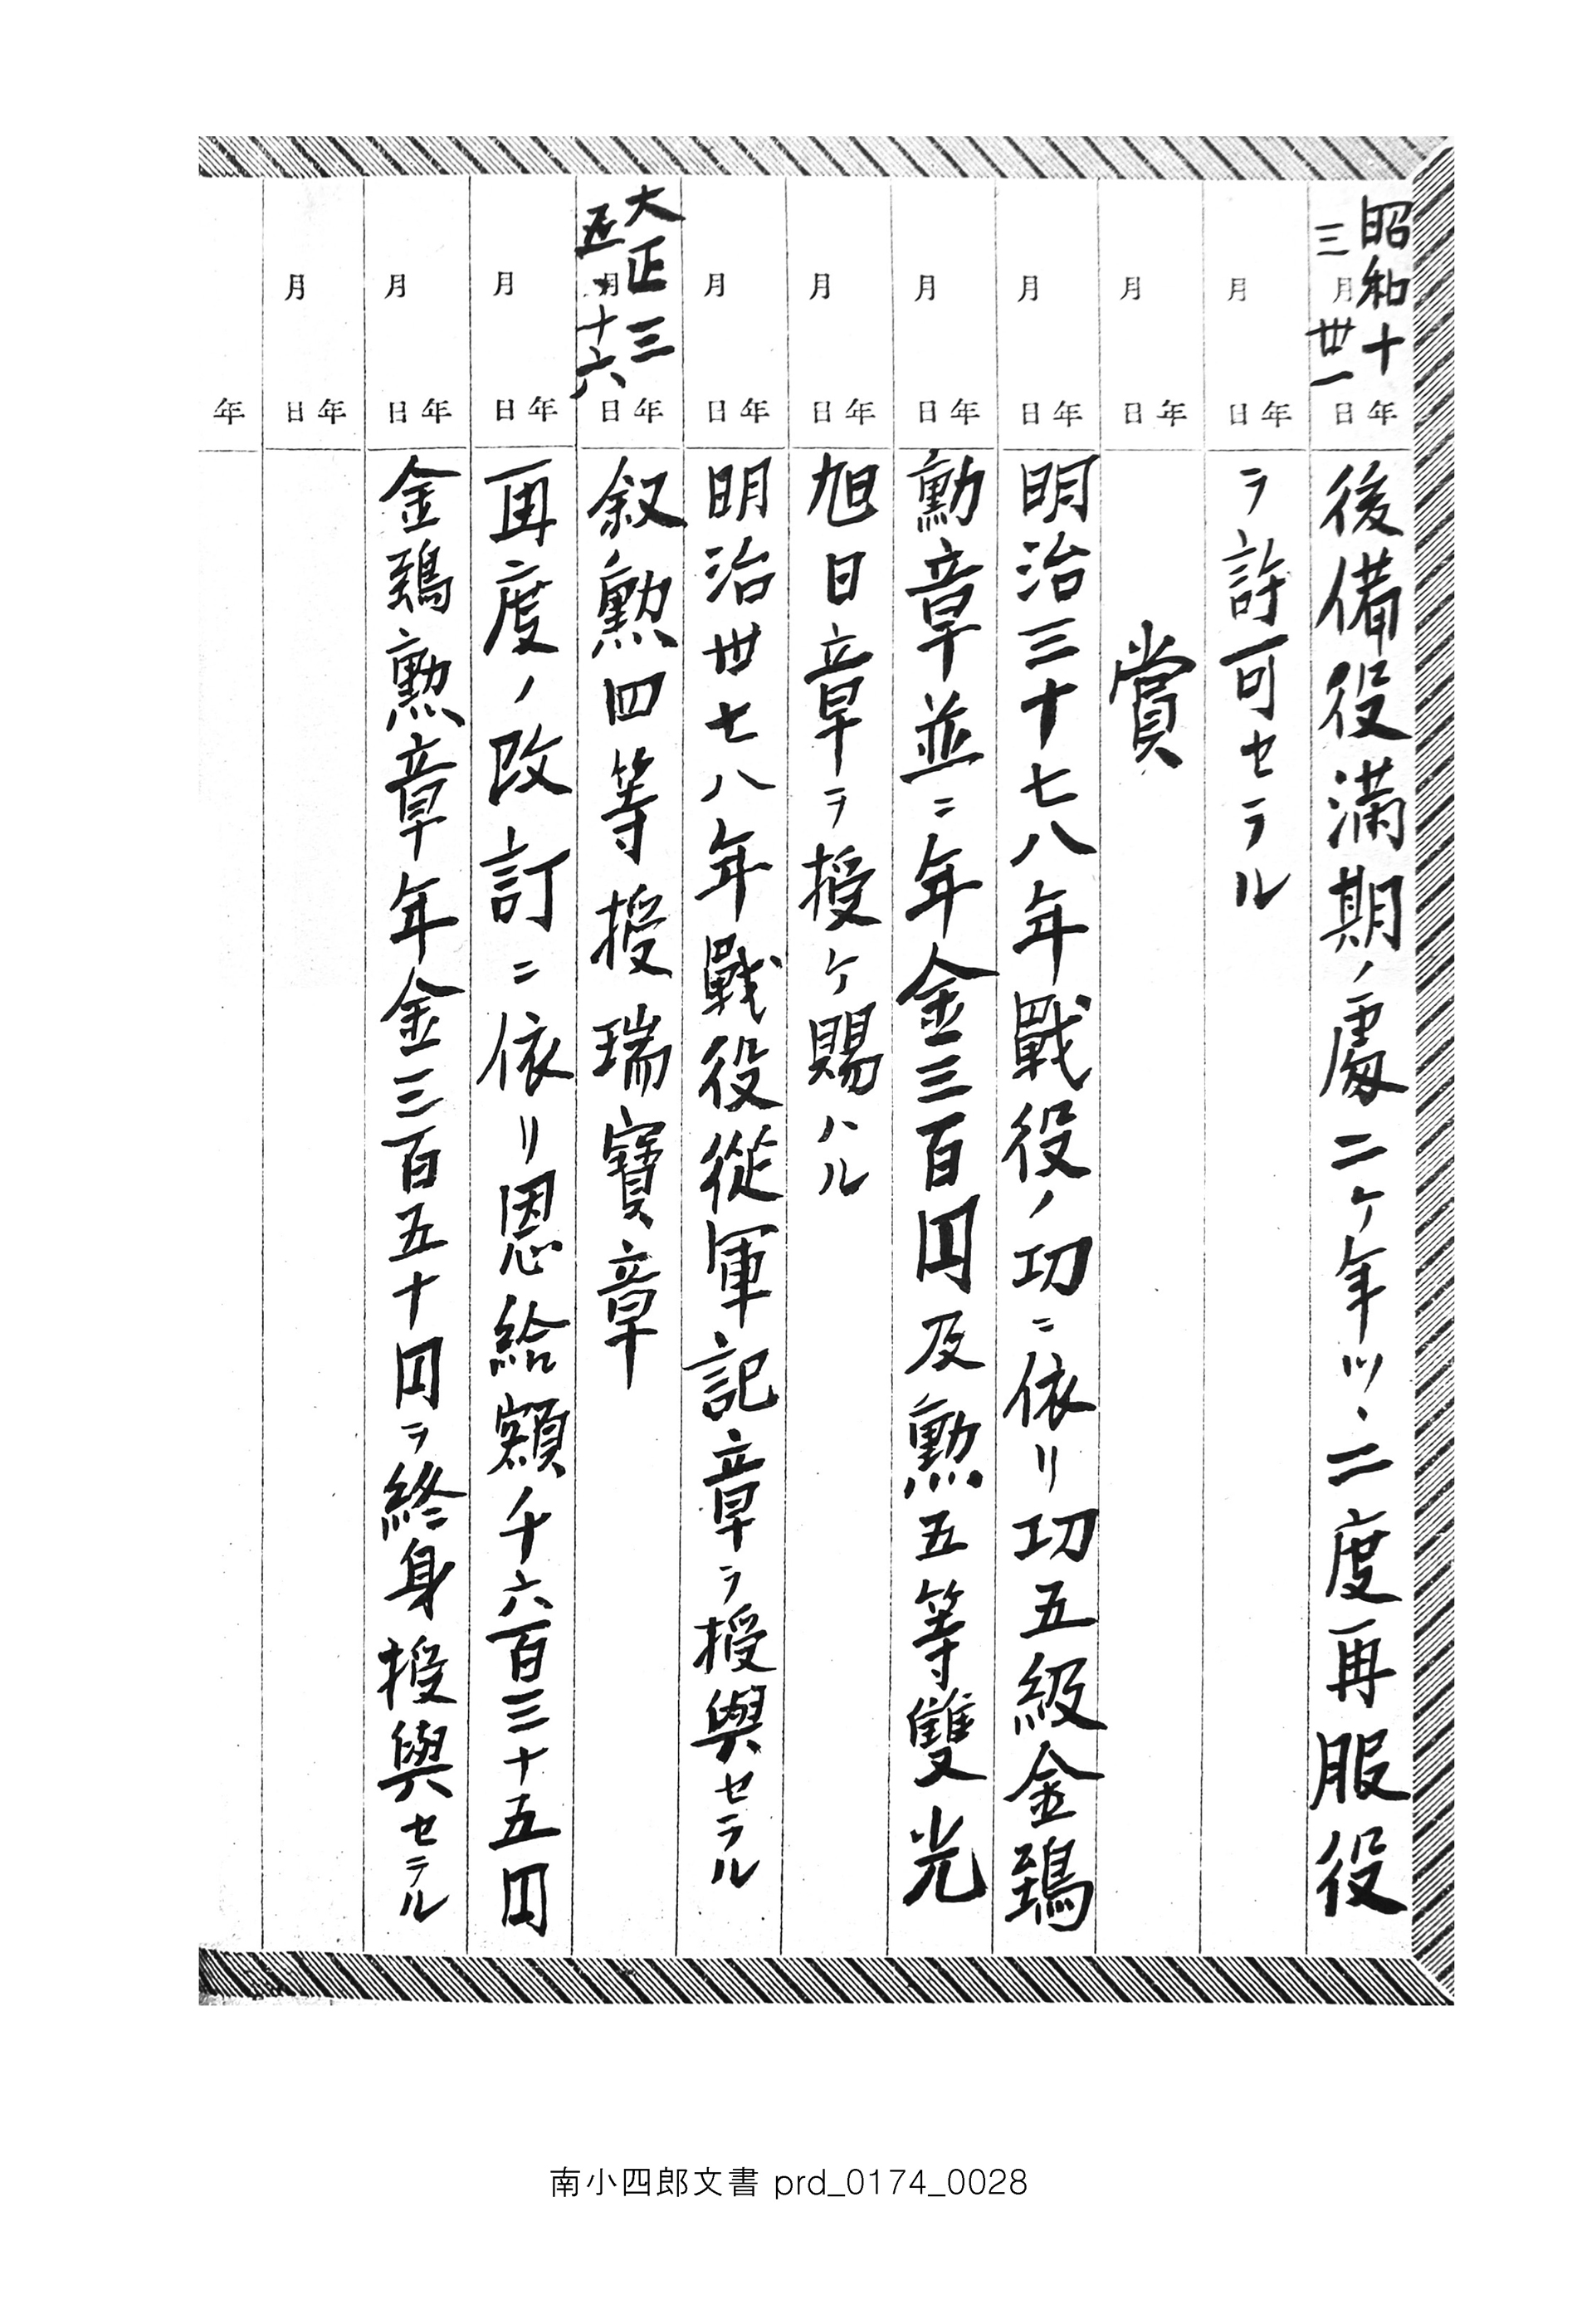 昭和十年三月卅一日 後備役滿期ノ處二ケ年ツヽ二度再服役
年月日 ヲ許可セラル
年月日 賞
年月日 明治三十七八年戰役ノ功ニ依リ功五級金鵄
年月日 勳章並ニ年金三百円及勲五等雙光
年月日 旭日章ヲ授ケ賜ハル
年月日 明治卅七八年戰役從軍記章ヲ授與セラル
大正三年五月十六日 叙勲四等授瑞寶章
年月日 再度ノ改訂ニ依リ恩給額千六百三十五円
年月日 金鵄勲章年金三百五十円ヲ終身授與セラル
年月日
年
南小四郎文書 prd_0174_0028